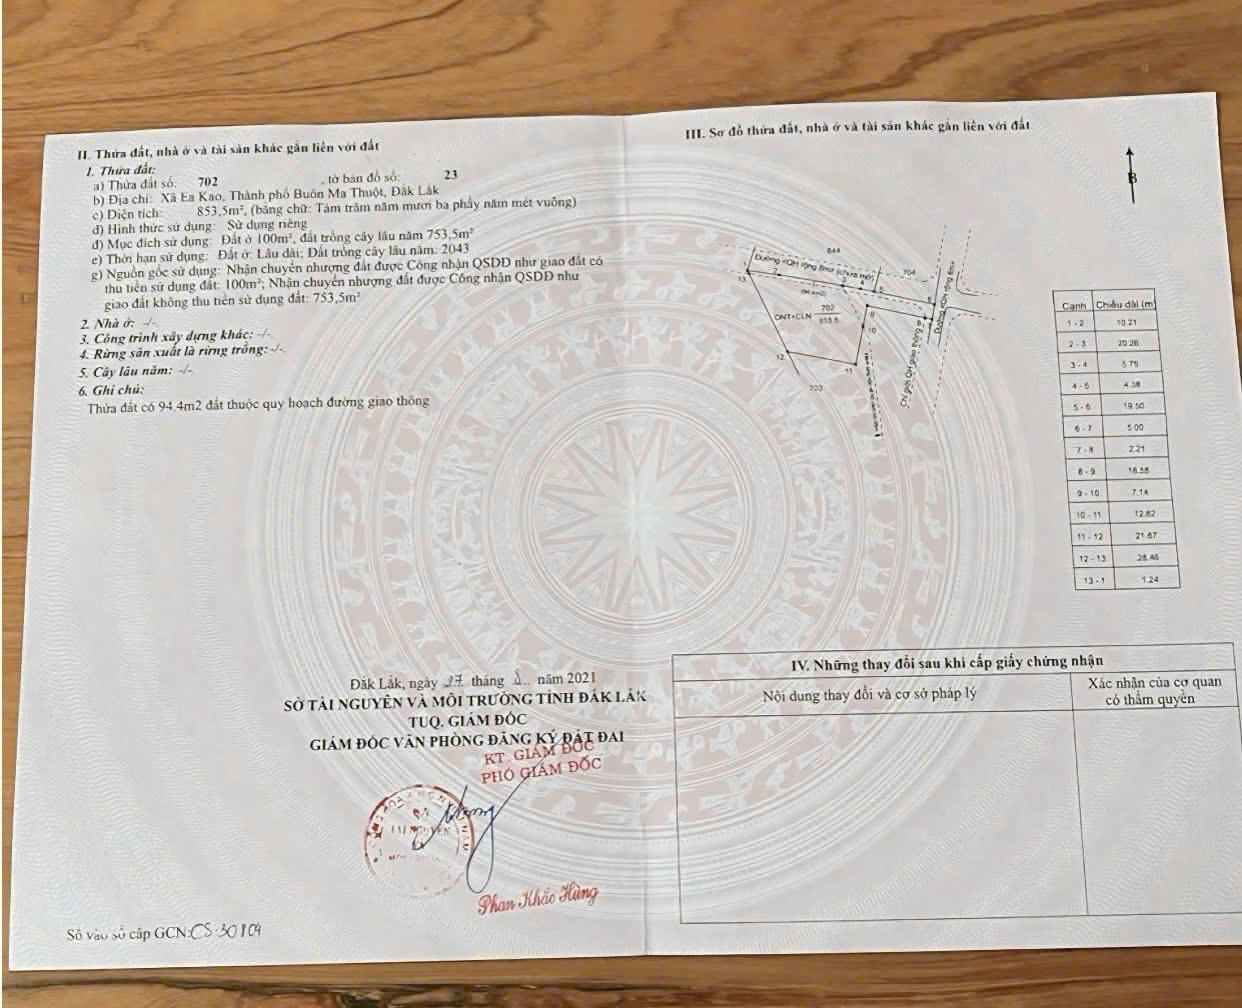 II. Thửa đất, nhà ở và tài sản khác gắn liền với đất
1. Thửa đất:
a) Thửa đất số: 702 , tờ bản đồ số: 23
b) Địa chỉ: Xã Ea Kao, Thành phố Buôn Ma Thuột, Đắk Lắk
c) Diện tích: 853,5m², (bằng chữ: Tám trăm năm mươi ba phẩy năm mét vuông)
d) Hình thức sử dụng: Sử dụng riêng
đ) Mục đích sử dụng: Đất ở 100m², đất trồng cây lâu năm 753,5m²
e) Thời hạn sử dụng: Đất ở: Lâu dài; Đất trồng cây lâu năm: 2043
g) Nguồn gốc sử dụng: Nhận chuyển nhượng đất được Công nhận QSDĐ như giao đất có
thu tiền sử dụng đất: 100m²; Nhận chuyển nhượng đất được Công nhận QSDĐ như
giao đất không thu tiền sử dụng đất: 753,5m²
2. Nhà ở: -/-.
3. Công trình xây dựng khác: -/-.
4. Rừng sản xuất là rừng trồng: -/-.
5. Cây lâu năm: -/-.
6. Ghi chú:
Thửa đất có 94.4m2 đất thuộc quy hoạch đường giao thông
Đắk Lắk, ngày 27 tháng năm 2021
SỞ TÀI NGUYÊN VÀ MÔI TRƯỜNG TỈNH ĐẮK LẮK
TUQ. GIÁM ĐỐC
GIÁM ĐỐC VĂN PHÒNG ĐĂNG KÝ ĐẤT ĐAI
KT. GIÁM ĐỐC
PHÓ GIÁM ĐỐC
SỞ
TÀI NGUYÊN
VÀ
Phan Khắc Hùng
Số vào sổ cấp GCN: CS-30104
III. Sơ đồ thửa đất, nhà ở và tài sản khác gắn liền với đất
B
644
Đường QH rộng 8m (chưa mở)
704
1
13
2
4
5
6
ONT+CLN 702
853.5
8
9
10
11
12
703
Chỉ giới QH giao thông
Đường QH rộng 8m
Cạnh Chiều dài (m)
1 - 2 10.21
2 - 3 20.26
3 - 4 5.75
4 - 5 4.38
5 - 6 19.50
6 - 7 5.00
7 - 8 2.21
8 - 9 18.58
9 - 10 7.14
10 - 11 12.62
11 - 12 21.67
12 - 13 28.46
13 - 1 1.24
IV. Những thay đổi sau khi cấp giấy chứng nhận
Nội dung thay đổi và cơ sở pháp lý
Xác nhận của cơ quan
có thẩm quyền